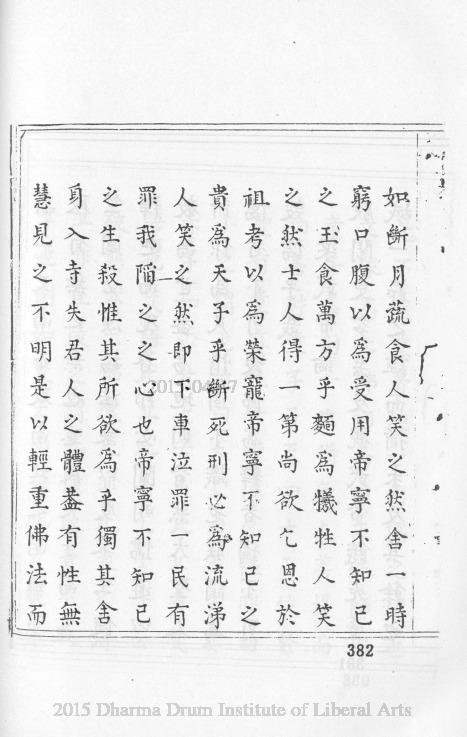 如斷月蔬食人笑之然舍一時
窮口腹以為受用帝寧不知己
之玉食萬方乎麵為犧牲人笑
之然士人得一第尚欲乞恩於
祖考以為榮寵帝寧不知己之
貴為天子乎斷死刑必為流涕
人笑之然即下車泣罪一民有
罪我陷之之心也帝寧不知己
之生殺惟其所欲為乎獨其舍
身入寺失君人之體葢有性無
慧見之不明是以輕重佛法而
382
2015 Dharma Drum Institute of Liberal Arts